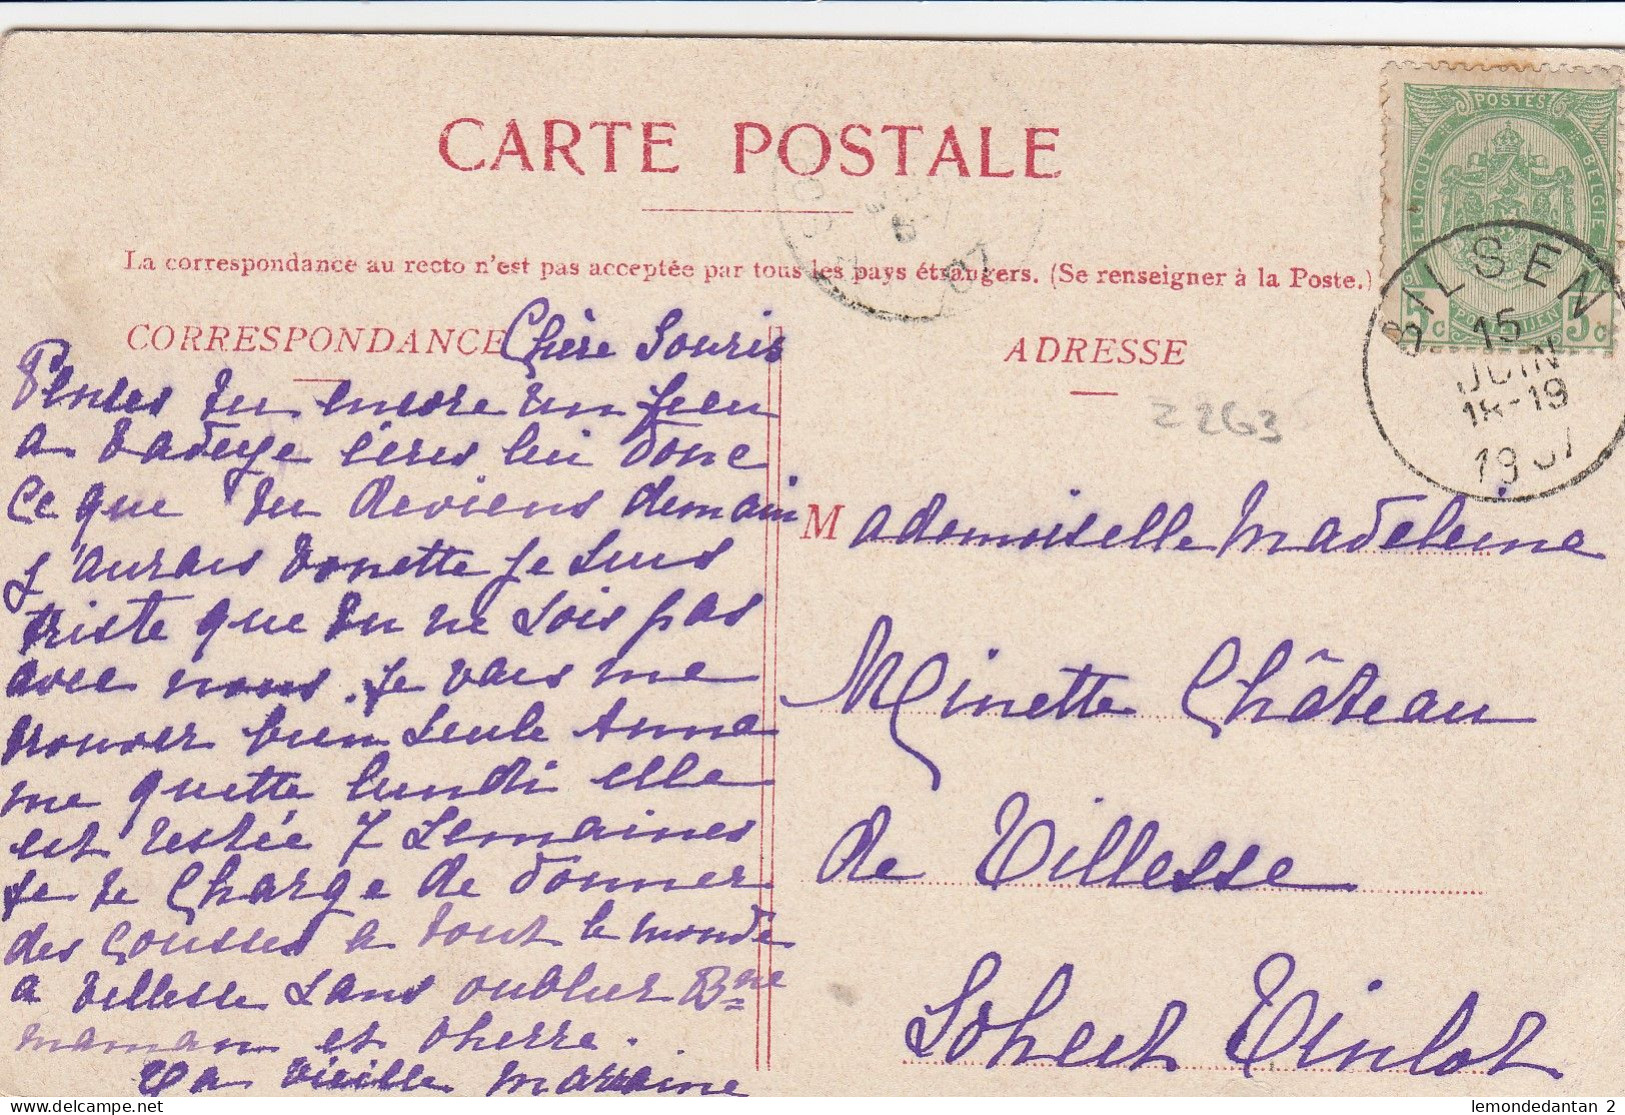 CARTE POSTALE
La correspondance au recto n'est pas acceptée par tous les pays étrangers. (Se renseigner à la Poste.)
CORRESPONDANCE
ADRESSE
POSTES
BELGIQUE
BELGIE
5c
5c
BILSEN
15
JUIN
18-19
1907
07
2263
Chère Souris
Penses tu encore un peu
a ecris lui donc
Ce que tu deviens demain
j'aurais je suis
triste que tu ne sois pas
avec nous. Je vais me
trouver bien seule Anna
me quitte lundi elle
est restée 7 semaines
je te charge de donner
des a tout le monde
a Villesse sans oublier Bne
maman et
Ta vieille marraine
Mademoiselle Madeleine
Minette Château
de Villesse
Soheit Tinlot
lemondedantan 2